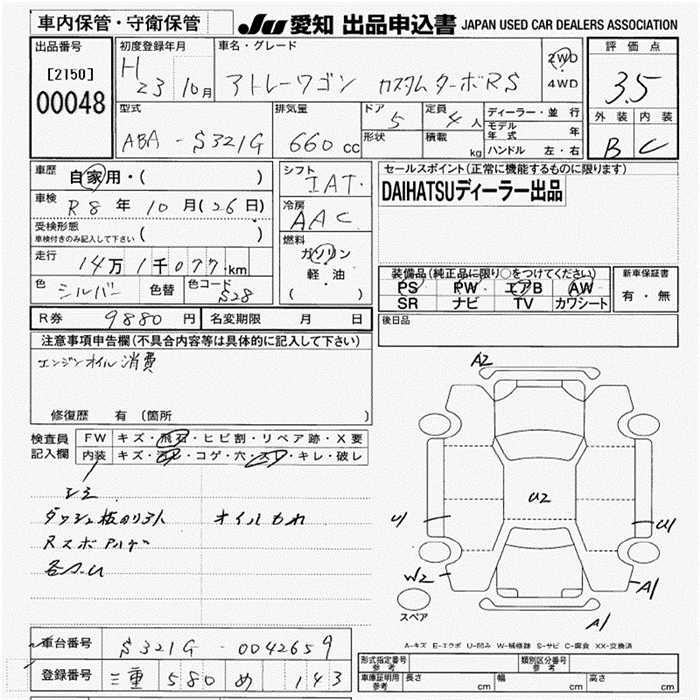 車内保管・守衛保管
JU 愛知 出品申込書 JAPAN USED CAR DEALERS ASSOCIATION
出品番号
[2150]
00048
初度登録年月
H23 10月
車名・グレード
アトレーワゴン カスタムターボRS
2WD
4WD
評価点
3.5
外装 内装
B C
型式
ABA - S321G
排気量
660 cc
ドア 5
形状
定員 4 人
積載 kg
ディーラー・並行
モデル年式 年
ハンドル 左・右
車歴
自家用・( )
車検
R8 年 10 月(26日)
受検形態
車検付きのみ記入して下さい ( )
走行
14万1千077 km
色 シルバー 色替 色コード S28
シフト
IAT
冷房
AAC
燃料
ガソリン
軽・油
( )
セールスポイント(正常に機能するものに限ります)
DAIHATSUディーラー出品
装備品(純正品に限り○をつけてください)
PS PW エアB AW
SR ナビ TV カワシート
新車保証書
有・無
R券 9880 円 名変期限 月 日
後日品
注意事項申告欄(不具合内容等は具体的に記入して下さい)
エンジンオイル消費
修復歴 有 (箇所 )
検査員記入欄
FW キズ・飛石・ヒビ割・リペア跡・X要
内装 キズ・汚れ・コゲ・穴・スレ・キレ・破レ
シミ
オイルもれ
A2
U2
W2
A1
A1
スペア
A-キズ E-エクボ U-凹み W-補修跡 S-サビ C-腐食 XX-交換済
車台番号 S321G - 0042659
登録番号 三重 580 め 143
形式指定番号 参考
類別区分番号 参考
車庫証明用 参考 長さ cm 幅 cm 高さ cm